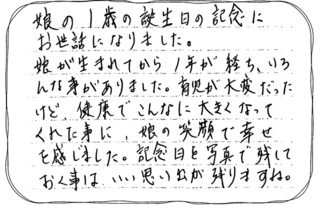 娘の1歳の誕生日の記念に
お世話になりました。
娘が生まれてから1年が経ち、いろ
んな事がありました。育児が大変だった
けど、健康でこんなに大きくなって
くれた事に、娘の笑顔で幸せ
を感じました。記念日を写真で残して
おく事は、いい思い出が残りますね。